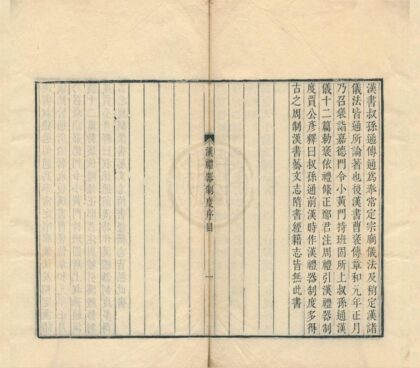 漢書叔孫通傳通爲奉常定宗廟儀法及稍定漢諸
儀法皆通所論著也後漢書曹褒傳章和元年正月
乃召褒詣嘉德門令小黃門持班固所上叔孫通漢
儀十二篇勑褒依禮條正鄭君注周禮引漢禮器制
度賈公彥釋曰叔孫通前漢時作漢禮器制度多得
古之周制漢書藝文志隋書經籍志皆無此書
漢禮器制度序目
一